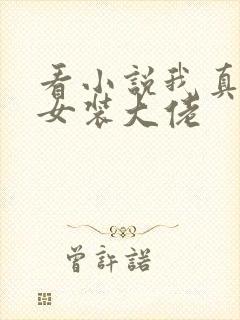 看小说我真
女装大佬
曾許諾